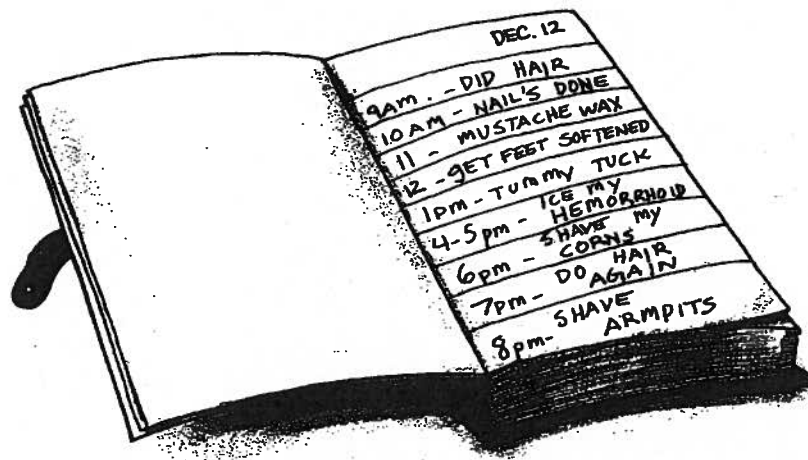 DEC. 12
9AM. - DID HAIR
10AM - NAIL'S DONE
11 - MUSTACHE WAX
12 - gET FEET SOFTENED
1pm - TUMMY TUCK
4-5pm - ICE my
HEMORRHOID
6pm - SHAVE my
CORNS
7pm - DO HAIR
AGAIN
8pm - SHAVE
ARMPITS